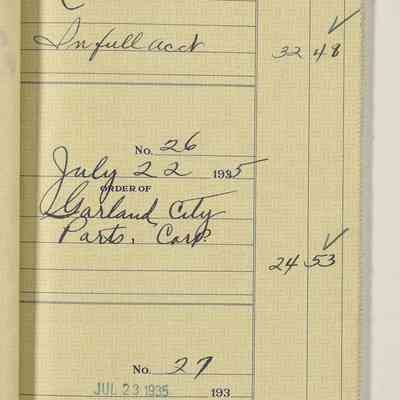 In full acct 32 48
No. 26
July 22 1935
ORDER OF
Garland City
Parts, Corp.
24 53
No. 27
JUL 23 1935 193